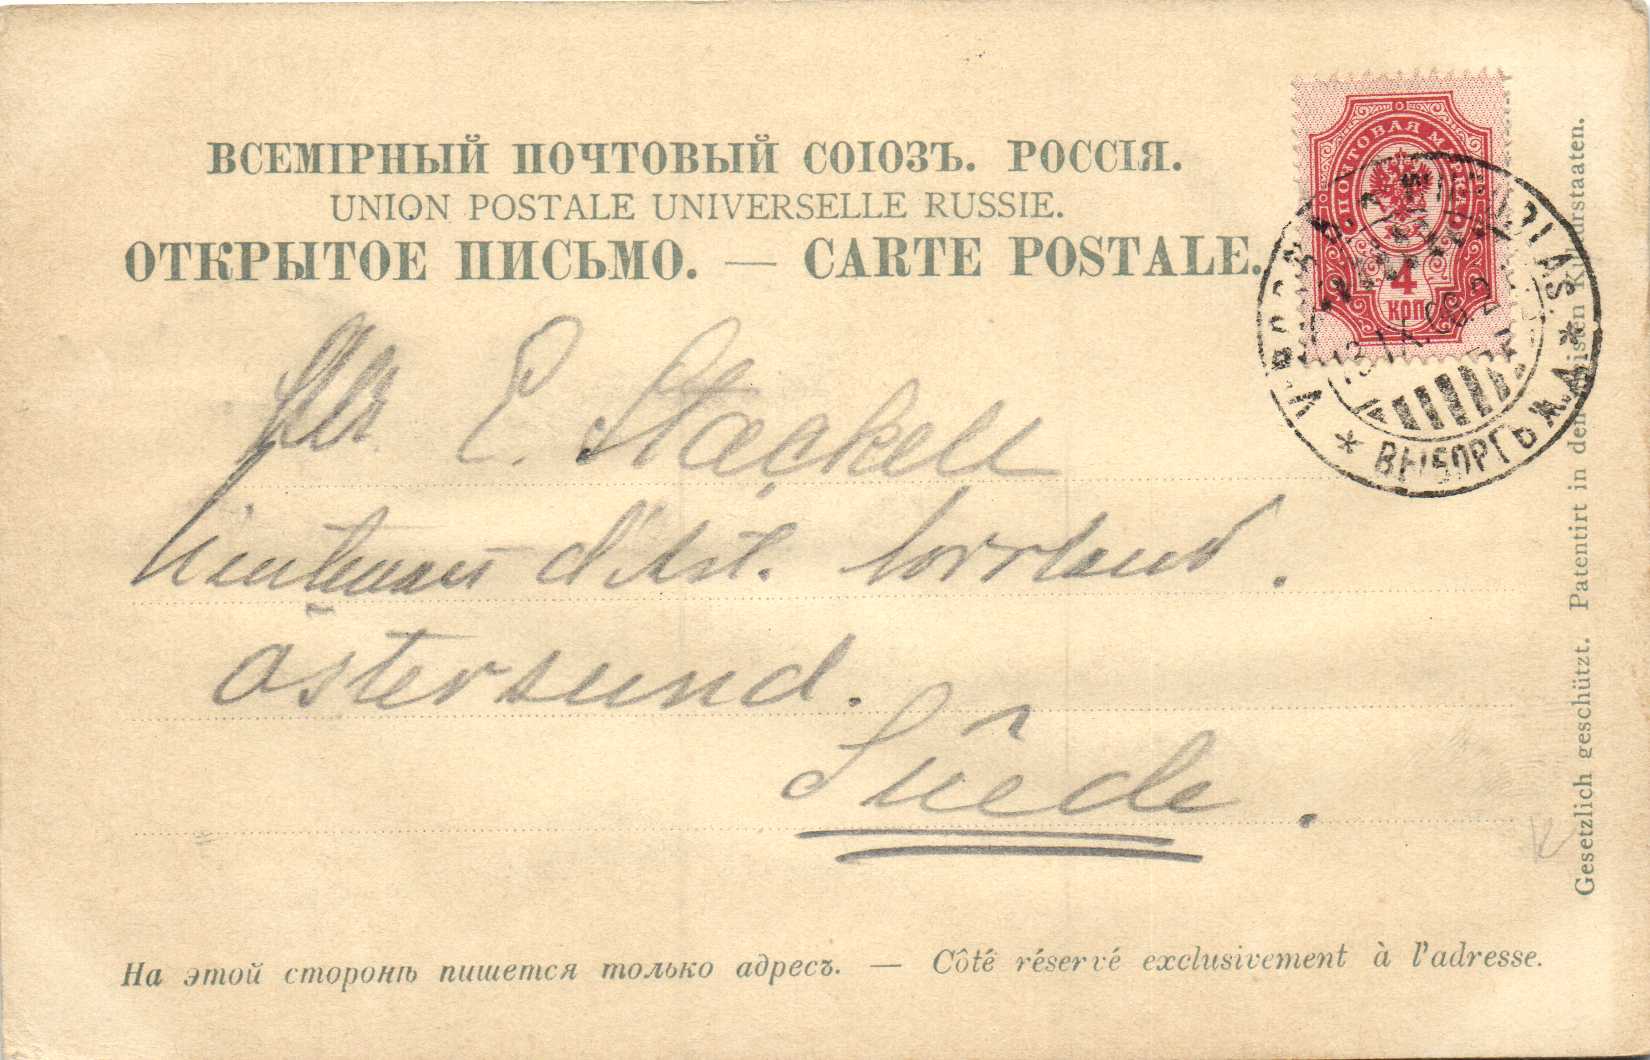 ВСЕМІРНЫЙ ПОЧТОВЫЙ СОЮЗЪ. РОССІЯ.
UNION POSTALE UNIVERSELLE RUSSIE.
ОТКРЫТОЕ ПИСЬМО. — CARTE POSTALE.
ПОЧТОВАЯ МАРКА
4
КОП
ВЫБОРГЪ
E. Stackell
d'Art. Norrland.
Östersund.
Suède.
На этой сторонѣ пишется только адресъ. — Côté réservé exclusivement à l'adresse.
Gesetzlich geschützt. Patentirt in den meisten Kulturstaaten.